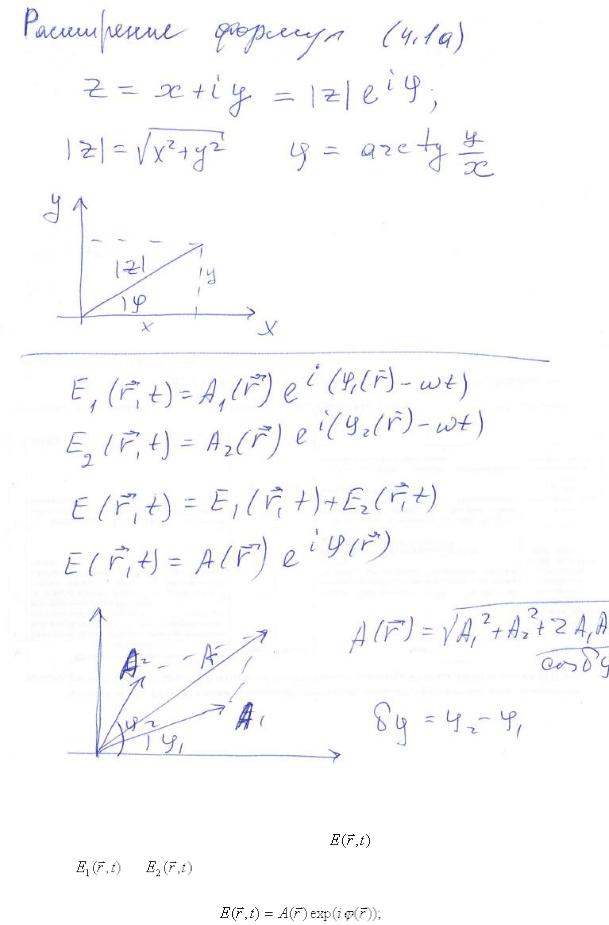 Расширение формул (4.1а)
z = x + iy = |z| e^{iφ};
|z| = √(x²+y²)   φ = arctg y/x
y
|z|
y
φ
x
x
E₁(r⃗,t) = A₁(r⃗) e^{i(φ₁(r⃗) - ωt)}
E₂(r⃗,t) = A₂(r⃗) e^{i(φ₂(r⃗) - ωt)}
E(r⃗,t) = E₁(r⃗,t) + E₂(r⃗,t)
E(r⃗,t) = A(r⃗) e^{iφ(r⃗)}
A(r⃗) = √(A₁² + A₂² + 2A₁A
cos δφ
A₂ A
A₁
φ₂
φ₁
δφ = φ₂ - φ₁
E(r⃗,t)
E₁(r⃗,t)   E₂(r⃗,t)
E(r⃗,t) = A(r⃗) exp(iφ(r⃗));